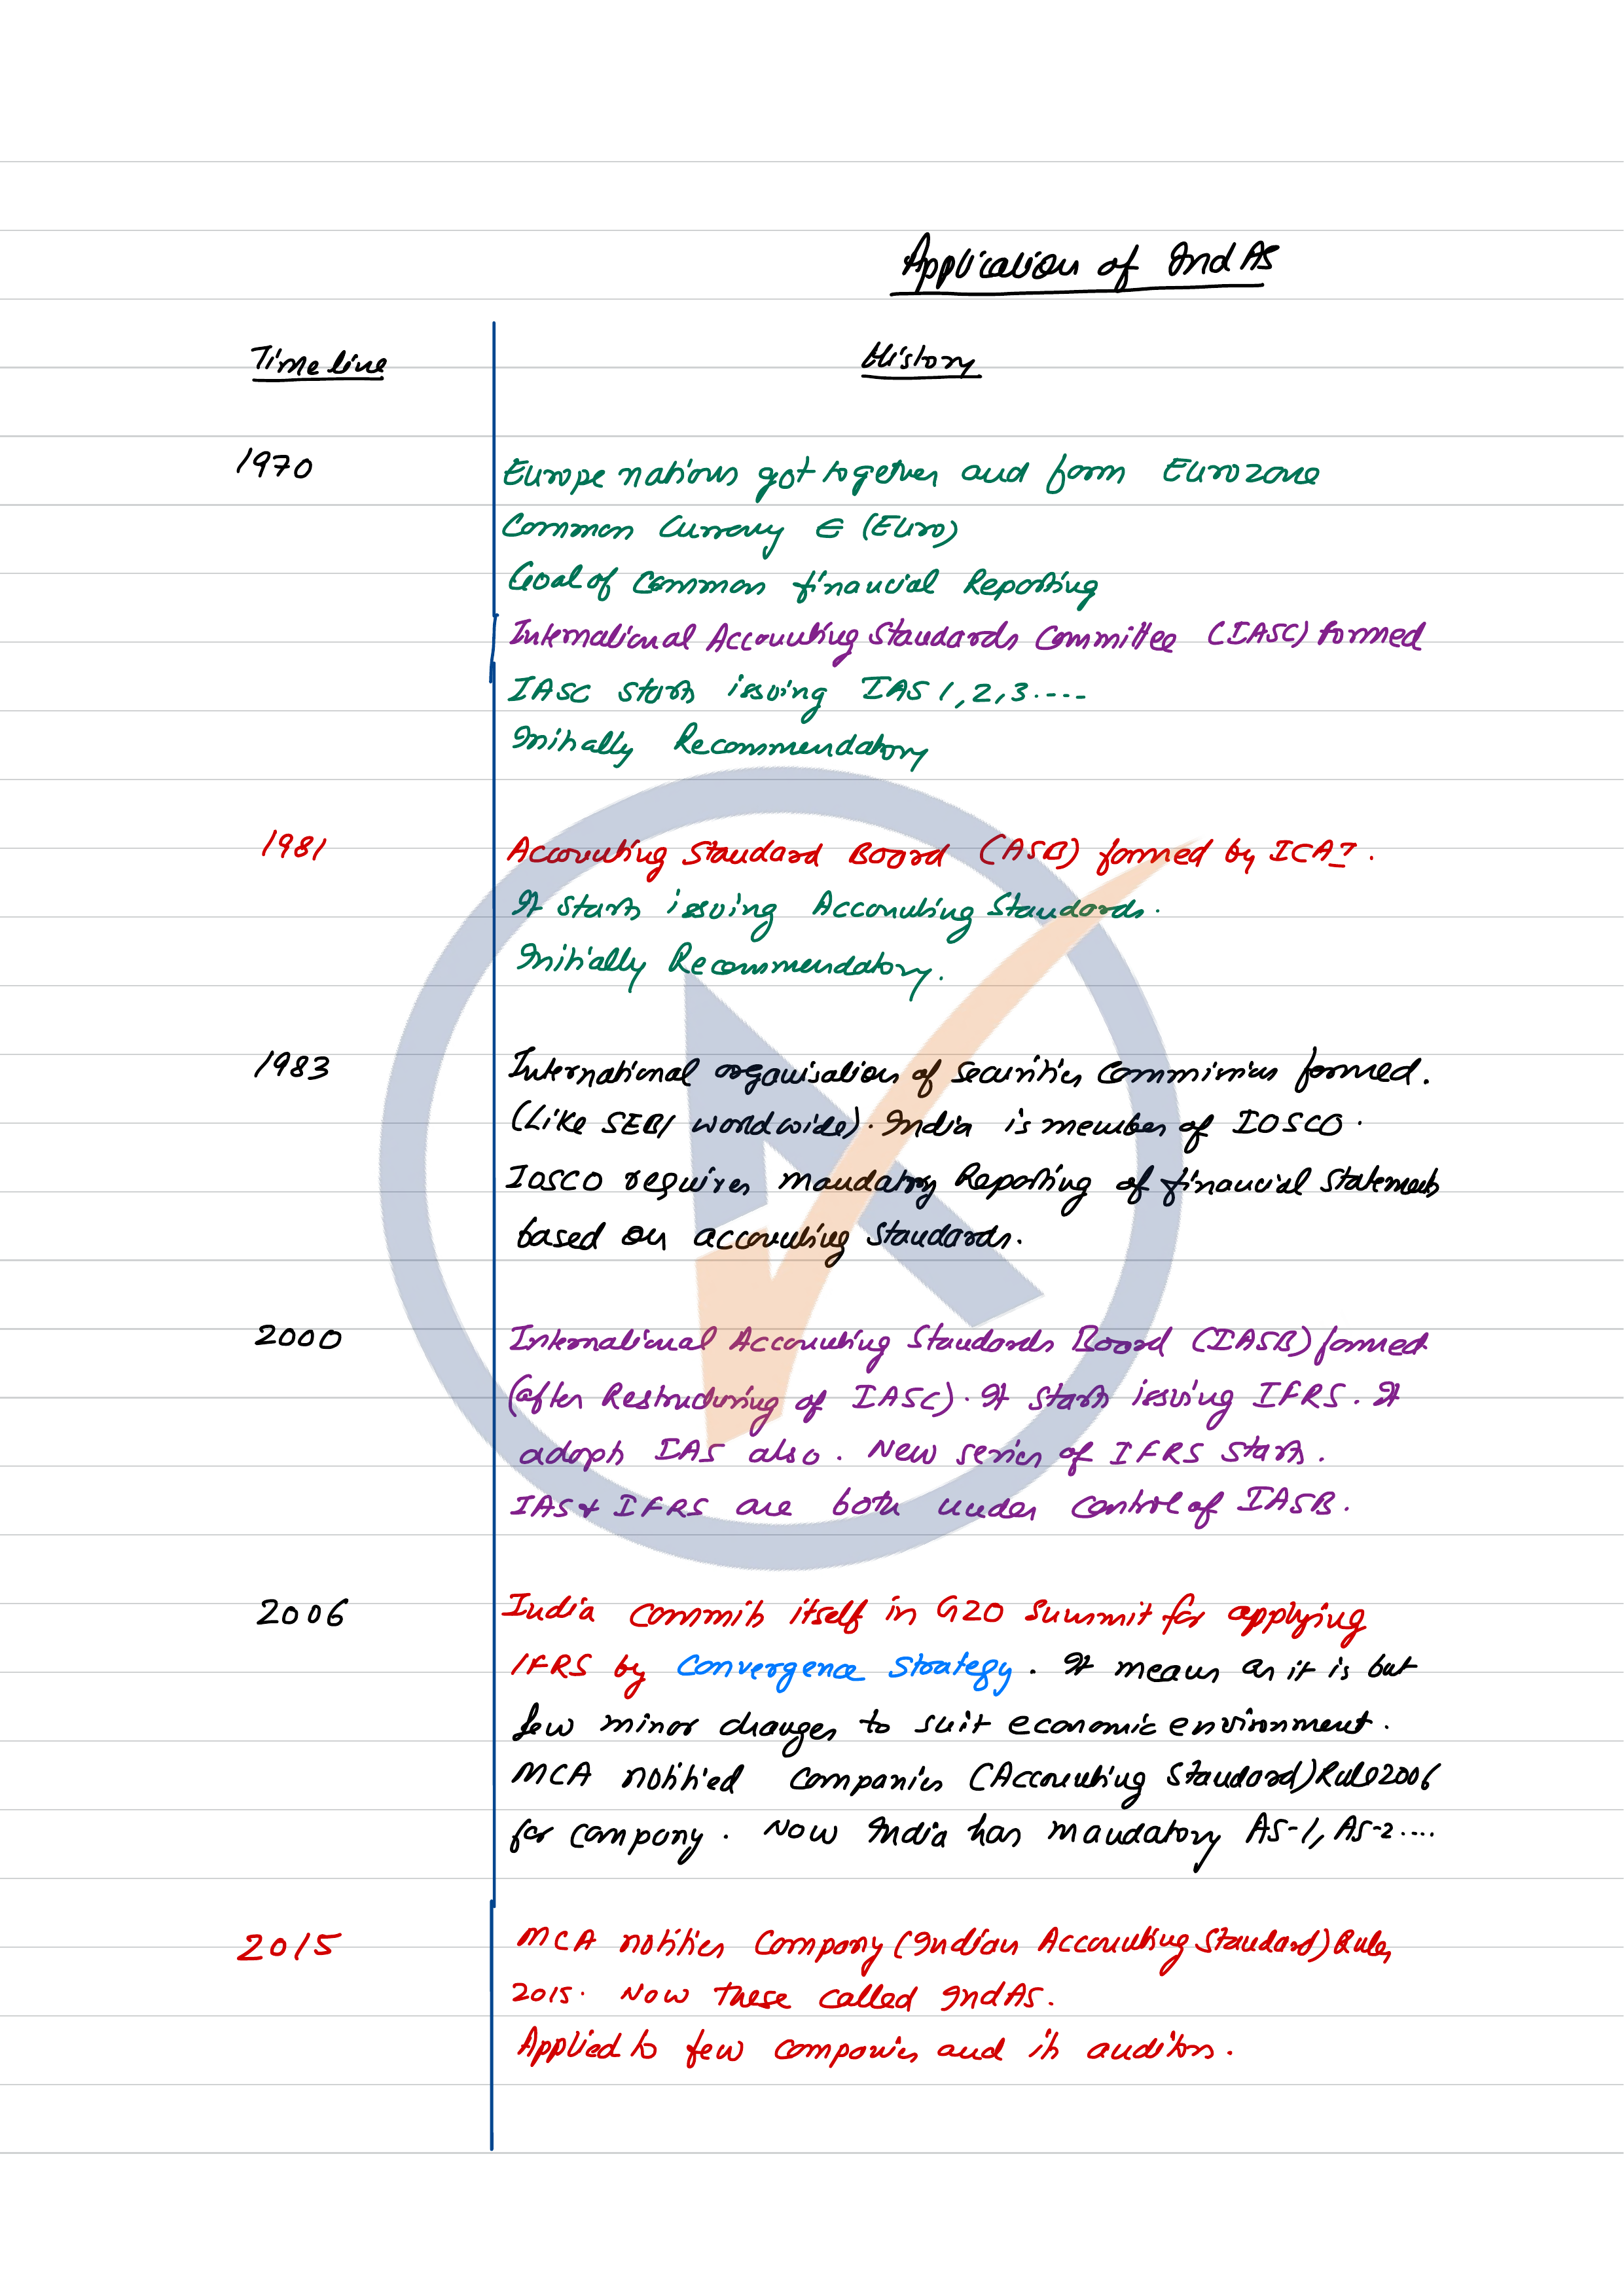 Application of Ind AS
Timeline
History
1970
Europe nations got together and form Eurozone
Common Currency € (Euro)
Goal of Common financial Reporting
International Accounting Standards Committee (IASC) formed
IASC starts issuing IAS 1, 2, 3 ....
Initially Recommendatory
1981
Accounting Standard Board (ASB) formed by ICAI.
It starts issuing Accounting Standards.
Initially Recommendatory.
1983
International organisation of securities commissions formed.
(Like SEBI worldwide). India is member of IOSCO.
IOSCO requires mandatory Reporting of financial statements
based on accounting standards.
2000
International Accounting Standards Board (IASB) formed
(after Restructuring of IASC). It starts issuing IFRS. It
adopts IAS also. New series of IFRS starts.
IAS & IFRS are both under control of IASB.
2006
India commits itself in G20 Summit for applying
IFRS by Convergence Strategy. It means as it is but
few minor changes to suit economic environment.
MCA notified Companies (Accounting Standard) Rule 2006
for company. Now India has mandatory AS-1, AS-2 ....
2015
MCA notifies Company (Indian Accounting Standard) Rules
2015. Now these called Ind AS.
Applied to few companies and its auditors.